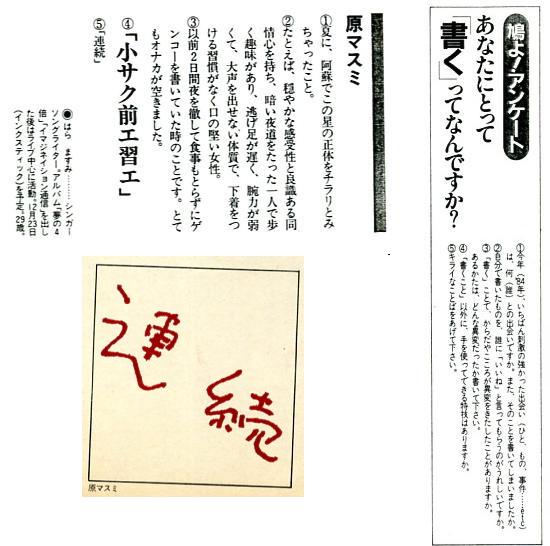 鳩よ!アンケート
あなたにとって
「書く」ってなんですか?
①今年('84年)、いちばん刺激の強かった出会い(ひと、もの、事件……etc)
は、何(誰)との出会いですか。また、そのことを書いてしまいましたか。
②自分で書いたものを、誰に「いいね」と言ってもらうのがうれしいですか。
③「書く」ことで、からだやこころが異変をきたしたことがありますか。
あるかたは、どんな異変だったか書いて下さい。
④「書くこと」以外に、手を使ってできる特技はありますか。
⑤キライなことばをあげて下さい。
原マスミ
①夏に、阿蘇でこの星の正体をチラリとみ
ちゃったこと。
②たとえば、穏やかな感受性と良識ある同
情心を持ち、暗い夜道をたった一人で歩
く趣味があり、逃げ足が遅く、腕力が弱
くて、大声を出せない体質で、下着をつ
ける習慣がなく口の堅い女性。
③以前2日間夜を徹して食事もとらずにゲ
ンコーを書いていた時のことです。とて
もオナカが空きました。
④「小サク前エ習エ」
⑤「連続」
◉はら ますみ………シンガー
ソングライター。アルバム「夢の4
倍」「イマヂネイション通信」を出し
た後はライブ中心に活動。12月23日
(インクスティック)を予定。29歳。
連続
原マスミ